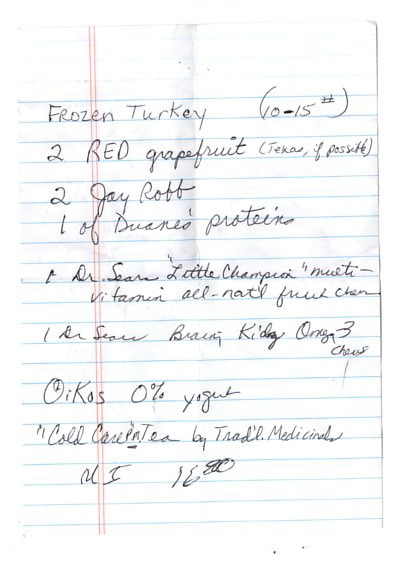 Frozen Turkey (10-15#)
2 RED grapefruit (Texas, if possible)
2 Jay Robb
1 of Duane's proteins
1 Dr. Sears "Little Champion" multi-
vitamin all-nat'l fruit chew
1 Dr Sears Brainy Kidz Omega 3
chews
1
Oikos 0% yogurt
"Cold Care" Tea by Trad'l. Medicinals